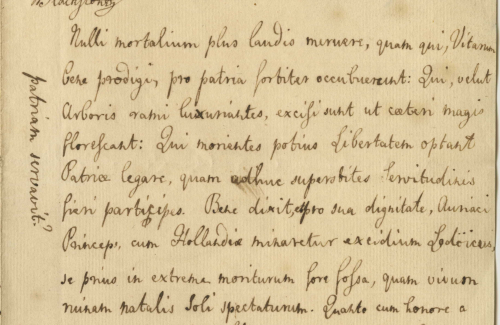 Nulli mortalium plus laudis meruere, quam qui, Vitarum
bene prodigi, pro patria fortiter occubuerunt: Qui, velut
Arboris rami luxuriantes, excisi sunt ut cæteri magis
florescant: Qui morientes potius Libertatem optant
Patriæ legare, quam adhuc superstites Servitudinis
fieri participes. Bene dixit, et pro sua dignitate, Auriaci
Princeps, cum Hollandiæ minaretur excidium Lodoicus,
se prius in extrema moriturum fore fossa, quam vivum
ruinam natalis soli spectaturum. Quanto cum honore a
patriam servavit?